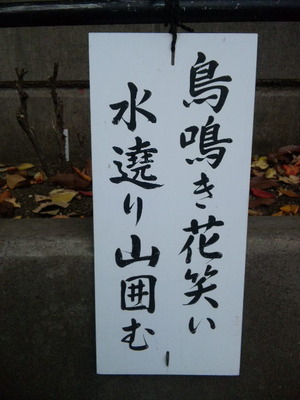 鳥鳴き花笑い
水遶り山囲む